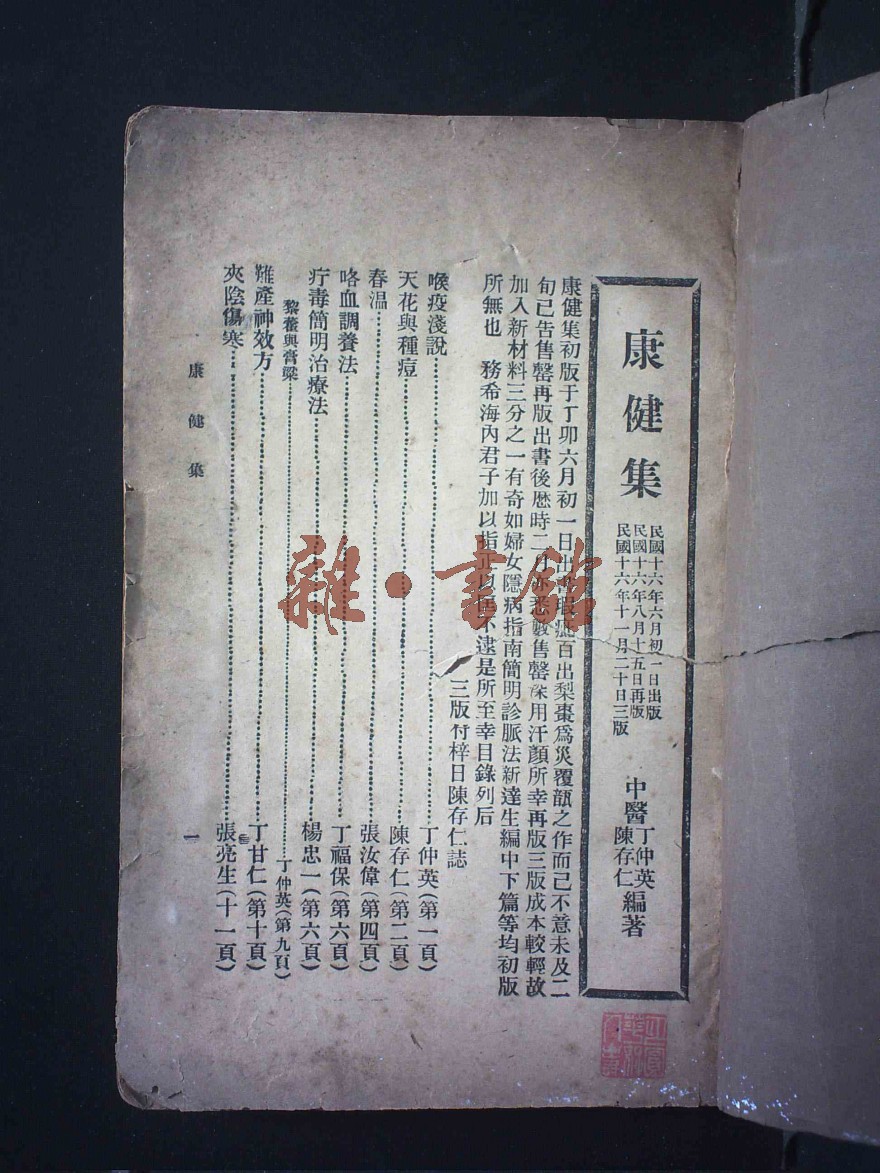 康健集
民國十六年六月初一日出版
民國十六年八月十五日再版
民國十六年十一月二十日三版
中醫
丁仲英
陳存仁
編著
康健集初版于丁卯六月初一日出書瑕疵百出梨棗為災覆瓿之作而已不意未及二
旬已告售罄再版出書後歷時二月亦悉數售罄深用汗顏所幸再版三版成本較輕故
加入新材料三分之一有奇如婦女隱病指南簡明診脈法新達生編中下篇等均初版
所無也 務希海內君子加以指正以匡不逮是所至幸目錄列后
三版付梓日陳存仁誌
喉疫淺說………丁仲英(第一頁)
天花與種痘………陳存仁(第二頁)
春温………張汝偉(第四頁)
咯血調養法………丁福保(第六頁)
疔毒簡明治療法………楊忠一(第六頁)
黎藿與膏粱………丁仲英(第九頁)
難產神效方………丁甘仁(第十頁)
夾陰傷寒………張亮生(十一頁)
康健集
一
雜·書館